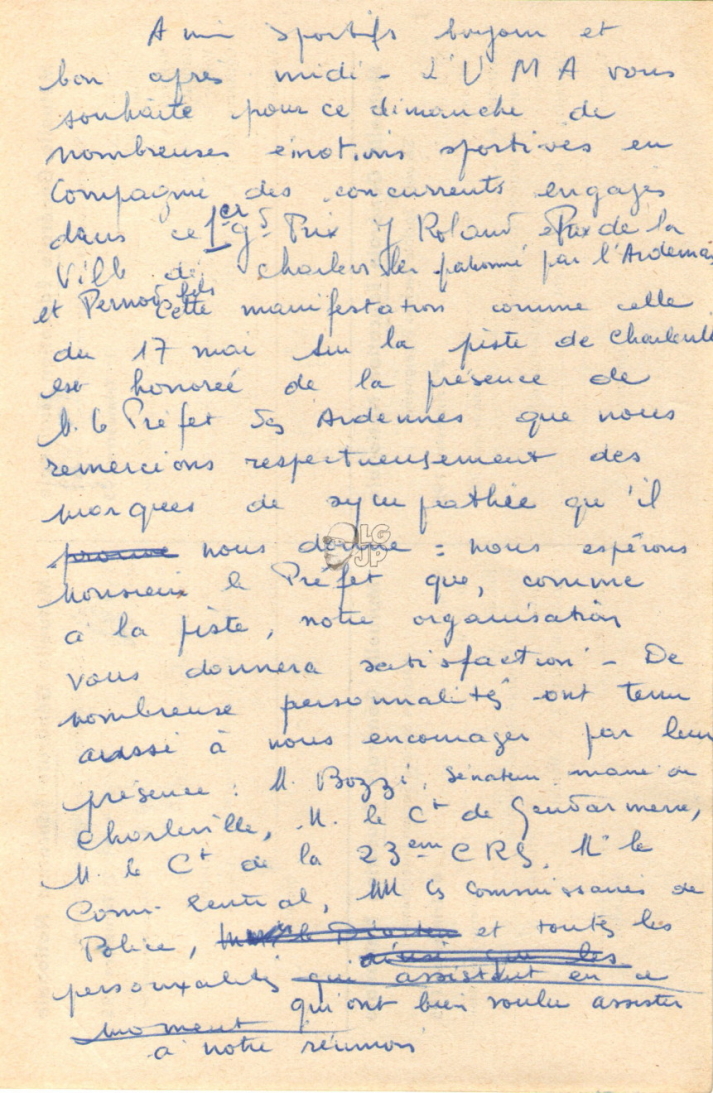 Amis sportifs bonjour et
bon après midi - L'U M A vous
souhaite pour ce dimanche de
nombreuses émotions sportives en
Compagnie des concurrents engagés
dans ce 1er gd Prix J Roland et Prix de la
Ville de Charleville patronné par l'Ardennais
et Pernod fils Cette manifestation comme celle
du 17 mai sur la piste de Charleville
est honorée de la présence de
M. le Préfet des Ardennes que nous
remercions respectueusement des
marques de sympathie qu'il
nous donne : nous espérons
Monsieur le Préfet que, comme
à la piste, notre organisation
vous donnera satisfaction - De
nombreuse personnalités ont tenu
aussi à nous encourager par leur
présence : M. Bozzi, Sénateur maire de
Charleville, M. le Ct de Gendarmerie,
M. le Ct de la 23eme CRS, Mr le
Comm. Central, MM les Commissaires de
Police, et toutes les
ainsi que les
personnalités qui assistent en ce
qui ont bien voulu assister
moment
à notre réunion
LG
JP